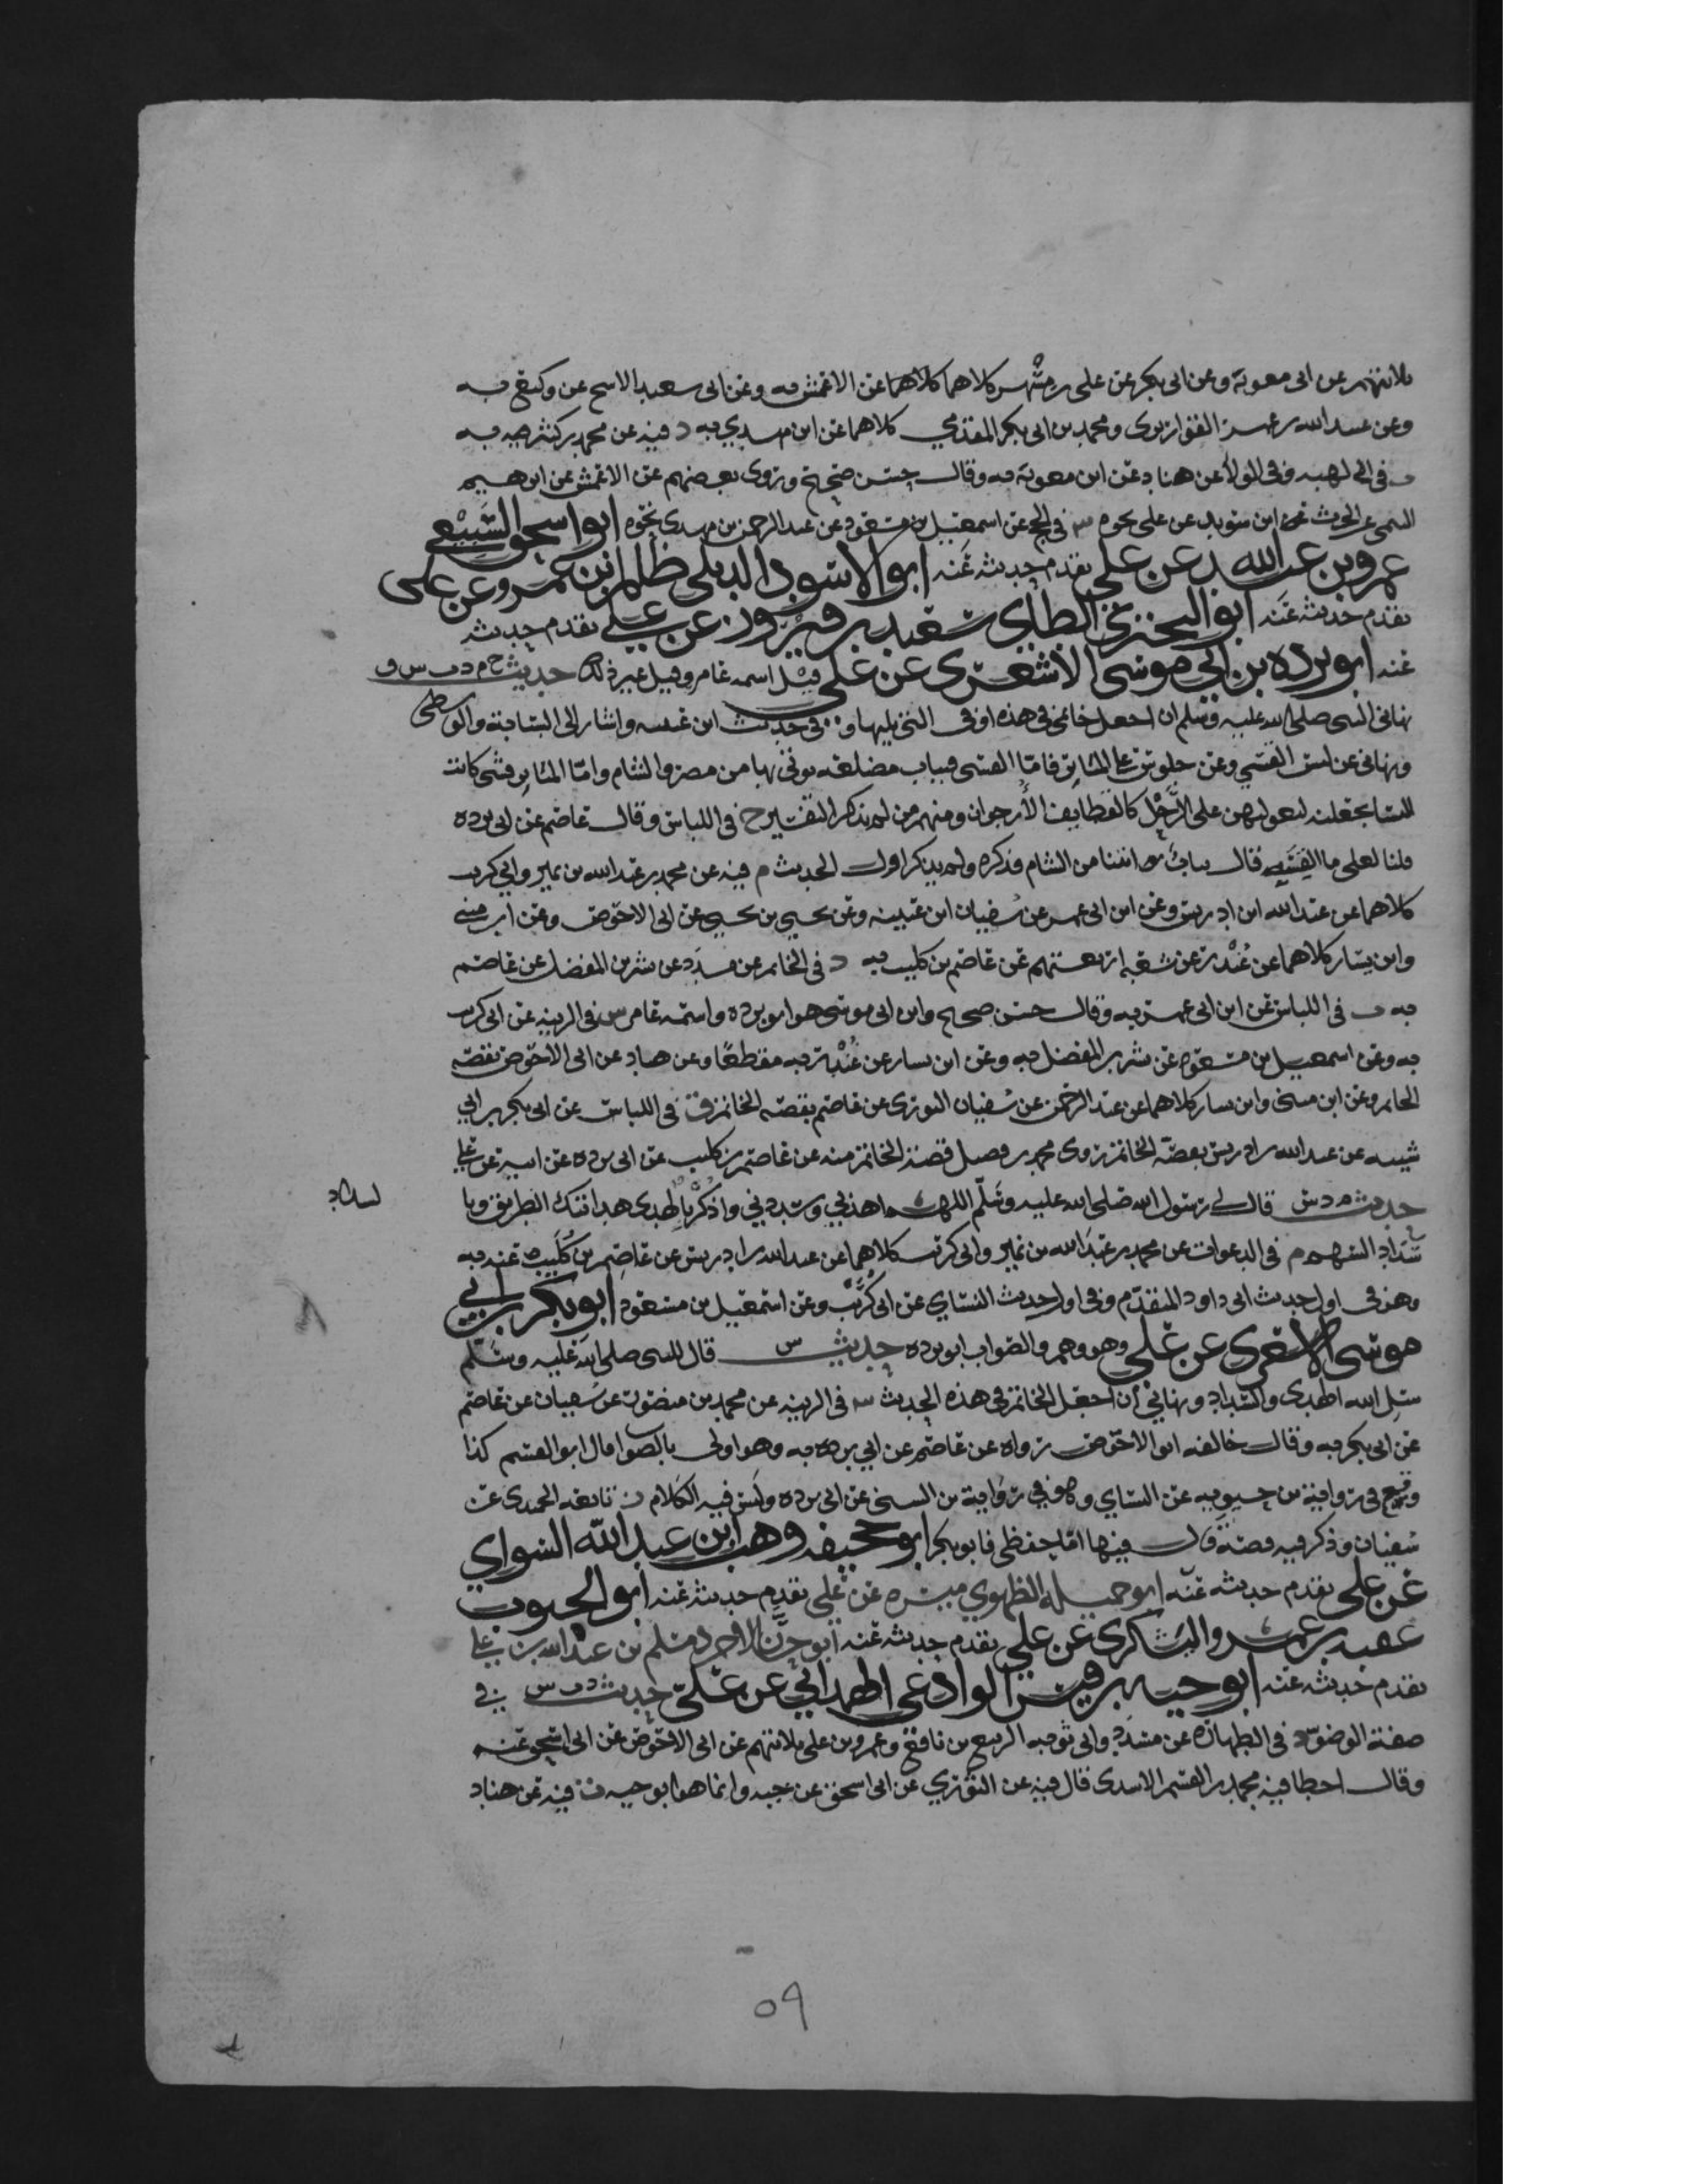 ثلاثتهم عن ابى معوية وعن ابى بكر عن على بن مسهر كلاهما كلاهما عن الاعمش به وعن ابى سعيد الاشج عن وكيع به
وعن عبيد الله بن عمر القواريرى ومحمد بن ابى بكر المقدمي كلاهما عن ابن مهدي به د فيه عن محمد بن كثير به
ت فى وفى الولاء عن هناد عن ابى معوية به وقال حسن صحيح وروى بعضهم عن الاعمش عن ابرهيم
التيمى عن الحرث عن ابن سويد عن على نحوه س فى الحج عن اسمعيل بن مسعود عن عبد الرحمن بن مهدى نحوه ابو اسحق السبيعي
عمرو بن عبد الله عن علي تقدم حديثه عنه ابو الاسود الديلى ظالم بن عمرو عن على
تقدم حديثه عنه ابو البختري الطاي سعيد بن فيروز عن علي تقدم حديثه
عنه ابو برده بن ابي موسى الاشعرى عن على قيل اسمه عامر وقيل غير ذلك حديث خ م د ت س ق
نهانى النبى صلى الله عليه وسلم ان اجعل خاتمى فى هذه او فى التى يليها و فى حديث ابن عيينه واشار الى السبابة والوسطى
ونهانى عن لبس القسي وعن جلوس على المياثر فاما القسى فثياب مضلعه يوتى بها من مصر والشام واما المياثر فشى كانت
النسا تجعلنه لبعولتهن على الرحل كالقطايف الأرجوان ومنهم من لم يذكر التفسير خ فى اللباس وقال عاصم عن ابى برده
قلنا لعلى ما القسيه قال ثياب اتتنا من الشام فذكره ولم يذكر اول الحديث م فيه عن محمد بن عبد الله بن نمير وابي كريب
كلاهما عن عبد الله ابن ادريس وعن ابن ابى عمر عن سفيان ابن عيينه وعن يحيى بن يحيى عن ابى الاحوص وعن ابن مثنى
وابن بشار كلاهما عن غندر عن شعبه اربعتهم عن عاصم بن كليب به د فى الخاتم عن مسدد عن بشر بن المفضل عن عاصم
به ت فى اللباس عن ابن ابى عمر به وقال حسن صحيح وابن ابى موسى هو ابو برده واسمه عامر س فى الزينه عن ابى كريب
به وعن اسمعيل بن مسعود عن بشر بن المفضل به وعن ابن بشار عن غندر به مقطعًا وعن هناد عن ابى الاحوص بقصة
الخاتم وعن ابن مثنى وابن بشار كلاهما عن عبد الرحمن عن سفيان الثورى عن عاصم بقصه الخاتم ق فى اللباس عن ابى بكر بن ابي
شيبه عن عبد الله بن ادريس بقصة الخاتم روى محمد بن فضيل قصة الخاتم منه عن عاصم بن كليب عن ابى برده عن ابيه عن علي
حديث م د س قال لي رسول الله صلى الله عليه وسلم اللهم اهدني وسددني واذكر بالهدى هدايتك الطريق وبا
السداد
سداد السهم م فى الدعوات عن محمد بن عبد الله بن نمير وابى كريب كلاهما عن عبد الله بن ادريس عن عاصم بن كليب عنه به
وهو فى اول حديث ابى داود المتقدم وفى اول حديث النساي عن ابى كريب وعن اسمعيل بن مسعود ابو بكر بن ابي
موسى الاشعرى عن علي وهو وهم والصواب ابو برده حديث س قال النبى صلى الله عليه وسلم
سل الله الهدى والسداد ونهاني أن اجعل الخاتم فى هذه الحديث س فى الزينه عن محمد بن منصور عن سفيان عن عاصم
عن ابى بكر به وقال خالفه ابو الاحوص رواه عن عاصم عن ابي برده به وهو اولى بالصواب قال ابو القسم كذا
وقع فى رواية بن حيويه عن النساي وهو في رواية بن السنى عن ابى برده وليس فيه الكلام تابعه الحميدى عن
سفيان وذكر فيه قصة قال فيها اما حفظى فابو بكر ابو جحيفه وهب ابن عبد الله السواي
عن على تقدم حديثه عنه ابو جميله الطهوي ميسره عن علي تقدم حديثه عنه ابو الجنوب
عقبه بن عمرو اليشكرى عن علي تقدم حديثه عنه ابو حسان الاعرج مسلم بن عبد الله عن علي
تقدم حديثه عنه ابو حيه بن قيس الوادعى الهمداني عن علي حديث د ت س في
صفة الوضو د فى الطهاره عن مسدد وابى توبه الربيع بن نافع وعمرو بن على ثلاثتهم عن ابى الاحوص عن ابى اسحق عنه
وقال اخطا فيه محمد بن القسم الاسدى قال فيه عن الثوري عن ابى اسحق عن حبه وانما هو ابو حيه ت فيه عن هناد
٥٩